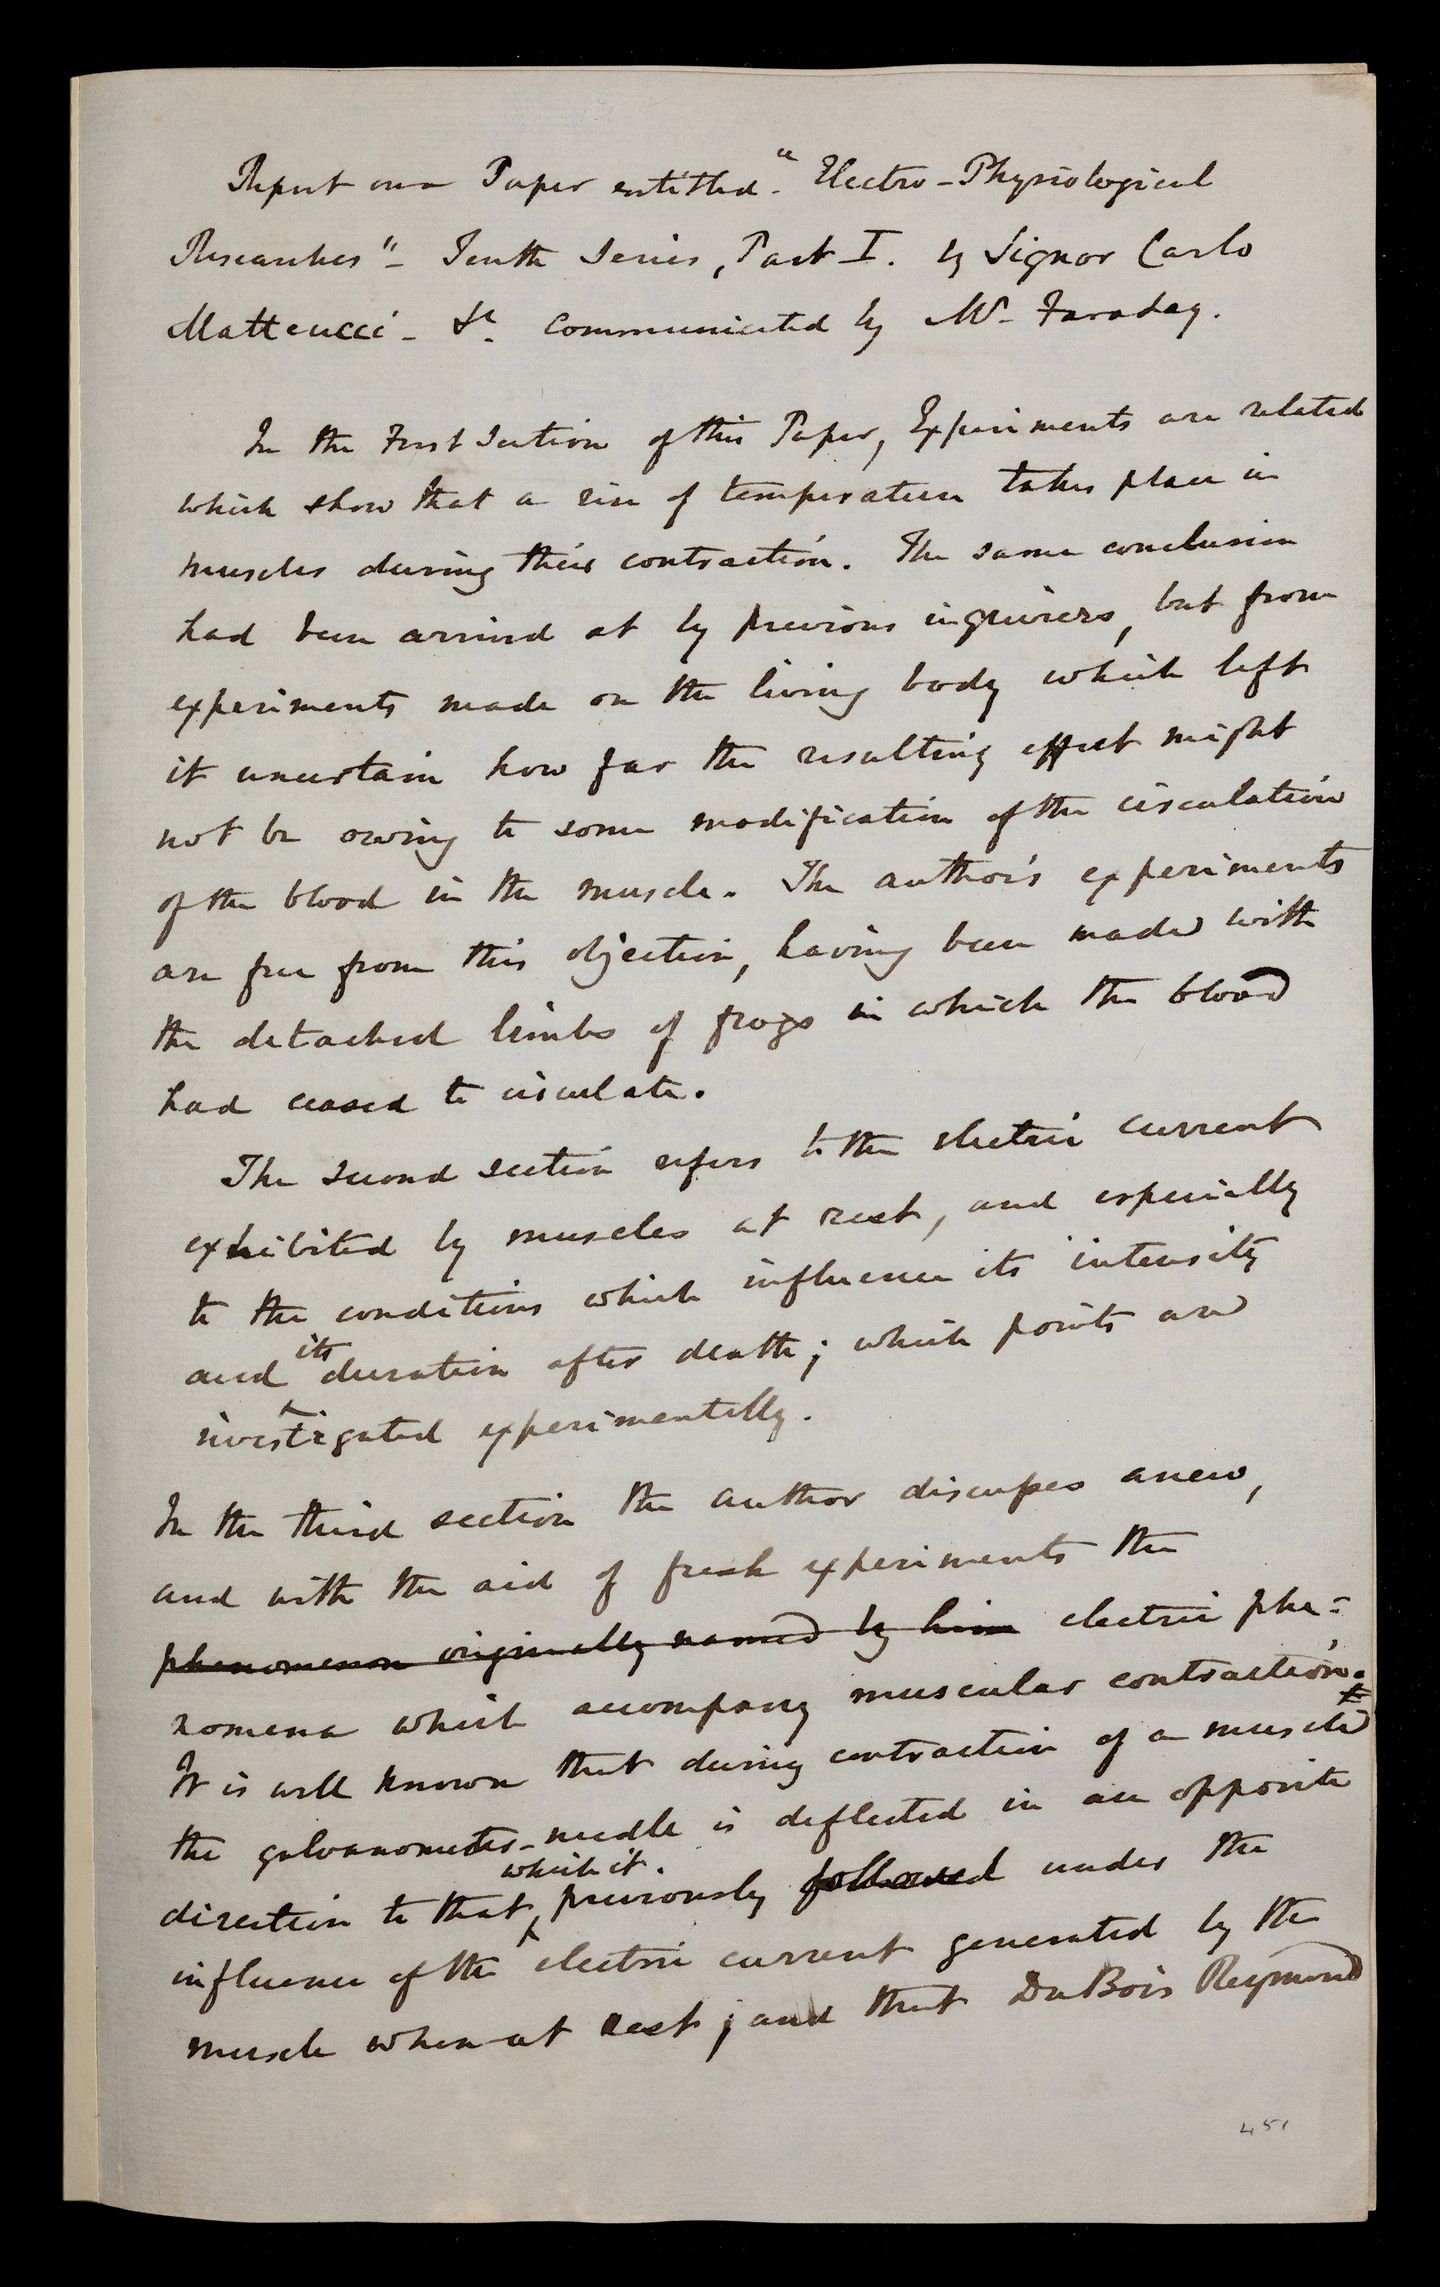 Report on a Paper entitled - "Electro-Physiological
Researches" - Tenth Series, Part I. by Signor Carlo
Matteucci - &c. Communicated by Mr. Faraday.
In the First Section of this Paper, Experiments are related
which show that a rise of temperature takes place in
muscles during their contraction. The same conclusion
had been arrived at by previous inquirers, but from
experiments made on the living body which left
it uncertain how far the resulting effect might
not be owing to some modification of the circulation
of the blood in the muscle. The author's experiments
are free from this objection, having been made with
the detached limbs of frogs in which the blood
had ceased to circulate.
The second section refers to the electric current
exhibited by muscles at rest, and especially
to the conditions which influence its intensity
and its duration after death; which points are
investigated experimentally.
In the third section the author discusses anew,
and with the aid of fresh experiments the
phenomenon originally named by him electric phe-
nomena which accompany muscular contraction.
It is well known that during contraction of a muscle
the galvanometer-needle is deflected in an opposite
direction to that which it previously followed under the
influence of the electric current generated by the
muscle when at rest; and that DuBois Reymond
451